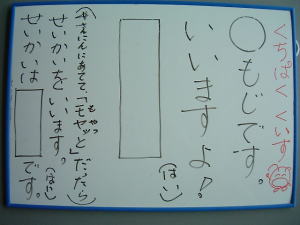 くちぱくくいず
○もじです。
いいますよ！
（はい）
（やさんにんにあてて、「モヤッと」だったら）
もやっ
せいかいをいいます。
（はい）
せいかいは です。